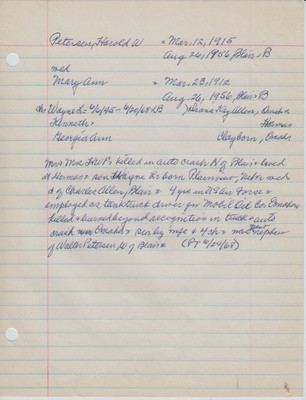 Petersen, Harold W * Mar. 12, 1915
Aug 26, 1956, Blair, B
md
Mary Ann * Mar. 23, 1912
Aug. 26, 1956, Blair, B
ch: Wayne L - 4/6/45 - 6/20/68 Allen, Omaha
Kenneth + Herman
Georgia Ann Clayborn, Omaha
Mr & Mrs HWP: killed in auto crash N of Blair & lived
at Herman & son Wayne L: born Plainview, Nebr md
d of Charles Allen, Blair & 4 yrs in US Air Force &
employed as tanktruck driver for Mobil Oil Co. Omaha
killed & burned beyond recognition in truck & auto
crash Omaha & sur by wife & 4 ch & nephew
of Walter Petersen, W of Blair (PT 6/24/68)